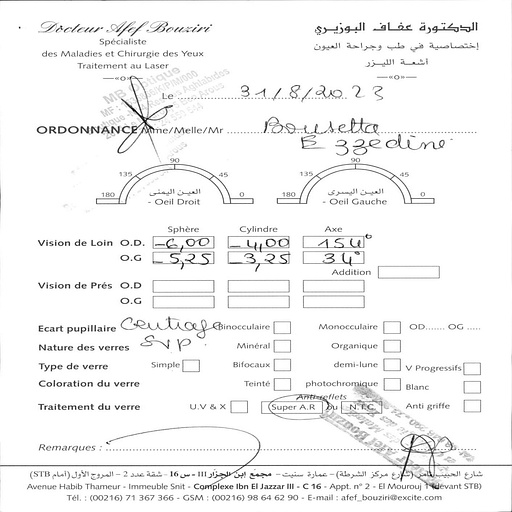 Docteur Afef Bouziri
Spécialiste
des Maladies et Chirurgie des Yeux
Traitement au Laser
الدكتورة عفاف البوزيري
إختصاصية في طب وجراحة العيون
أشعـة الليـزر
Le 31/8/2023
ORDONNANCE Mme/Melle/Mr Bousetta
Ezzedine
180 135 90 45 0
العيـن اليمنى
- Oeil Droit
180 135 90 45 0
العيـن اليسرى
- Oeil Gauche
Sphère Cylindre Axe
Vision de Loin O.D. -6,00 -4,00 154°
O.G -5,25 -3,25 34°
Addition
Vision de Prés O.D
O.G
Ecart pupillaire Centrage Binocculaire Monoculaire OD....... OG .....
SVP
Nature des verres Minéral Organique
Type de verre Simple Bifocaux demi-lune V Progressifs
Coloration du verre Teinté photochromique Blanc
Anti-reflets
Traitement du verre U.V & X Super A.R ou N.T.C Anti griffe
Remarques :
شارع الحبيب ثامر (شارع مركز الشرطة) - عمارة سنيت - مجمع ابن الجزار III - س 16 - شقة عدد 2 - المروج الأول (أمام STB)
Avenue Habib Thameur - Immeuble Snit - Complexe Ibn El Jazzar III - C 16 - Appt. n° 2 - El Mourouj 1 (devant STB)
Tél. : (00216) 71 367 366 - GSM : (00216) 98 64 62 90 - E-mail : afef_bouziri@excite.com